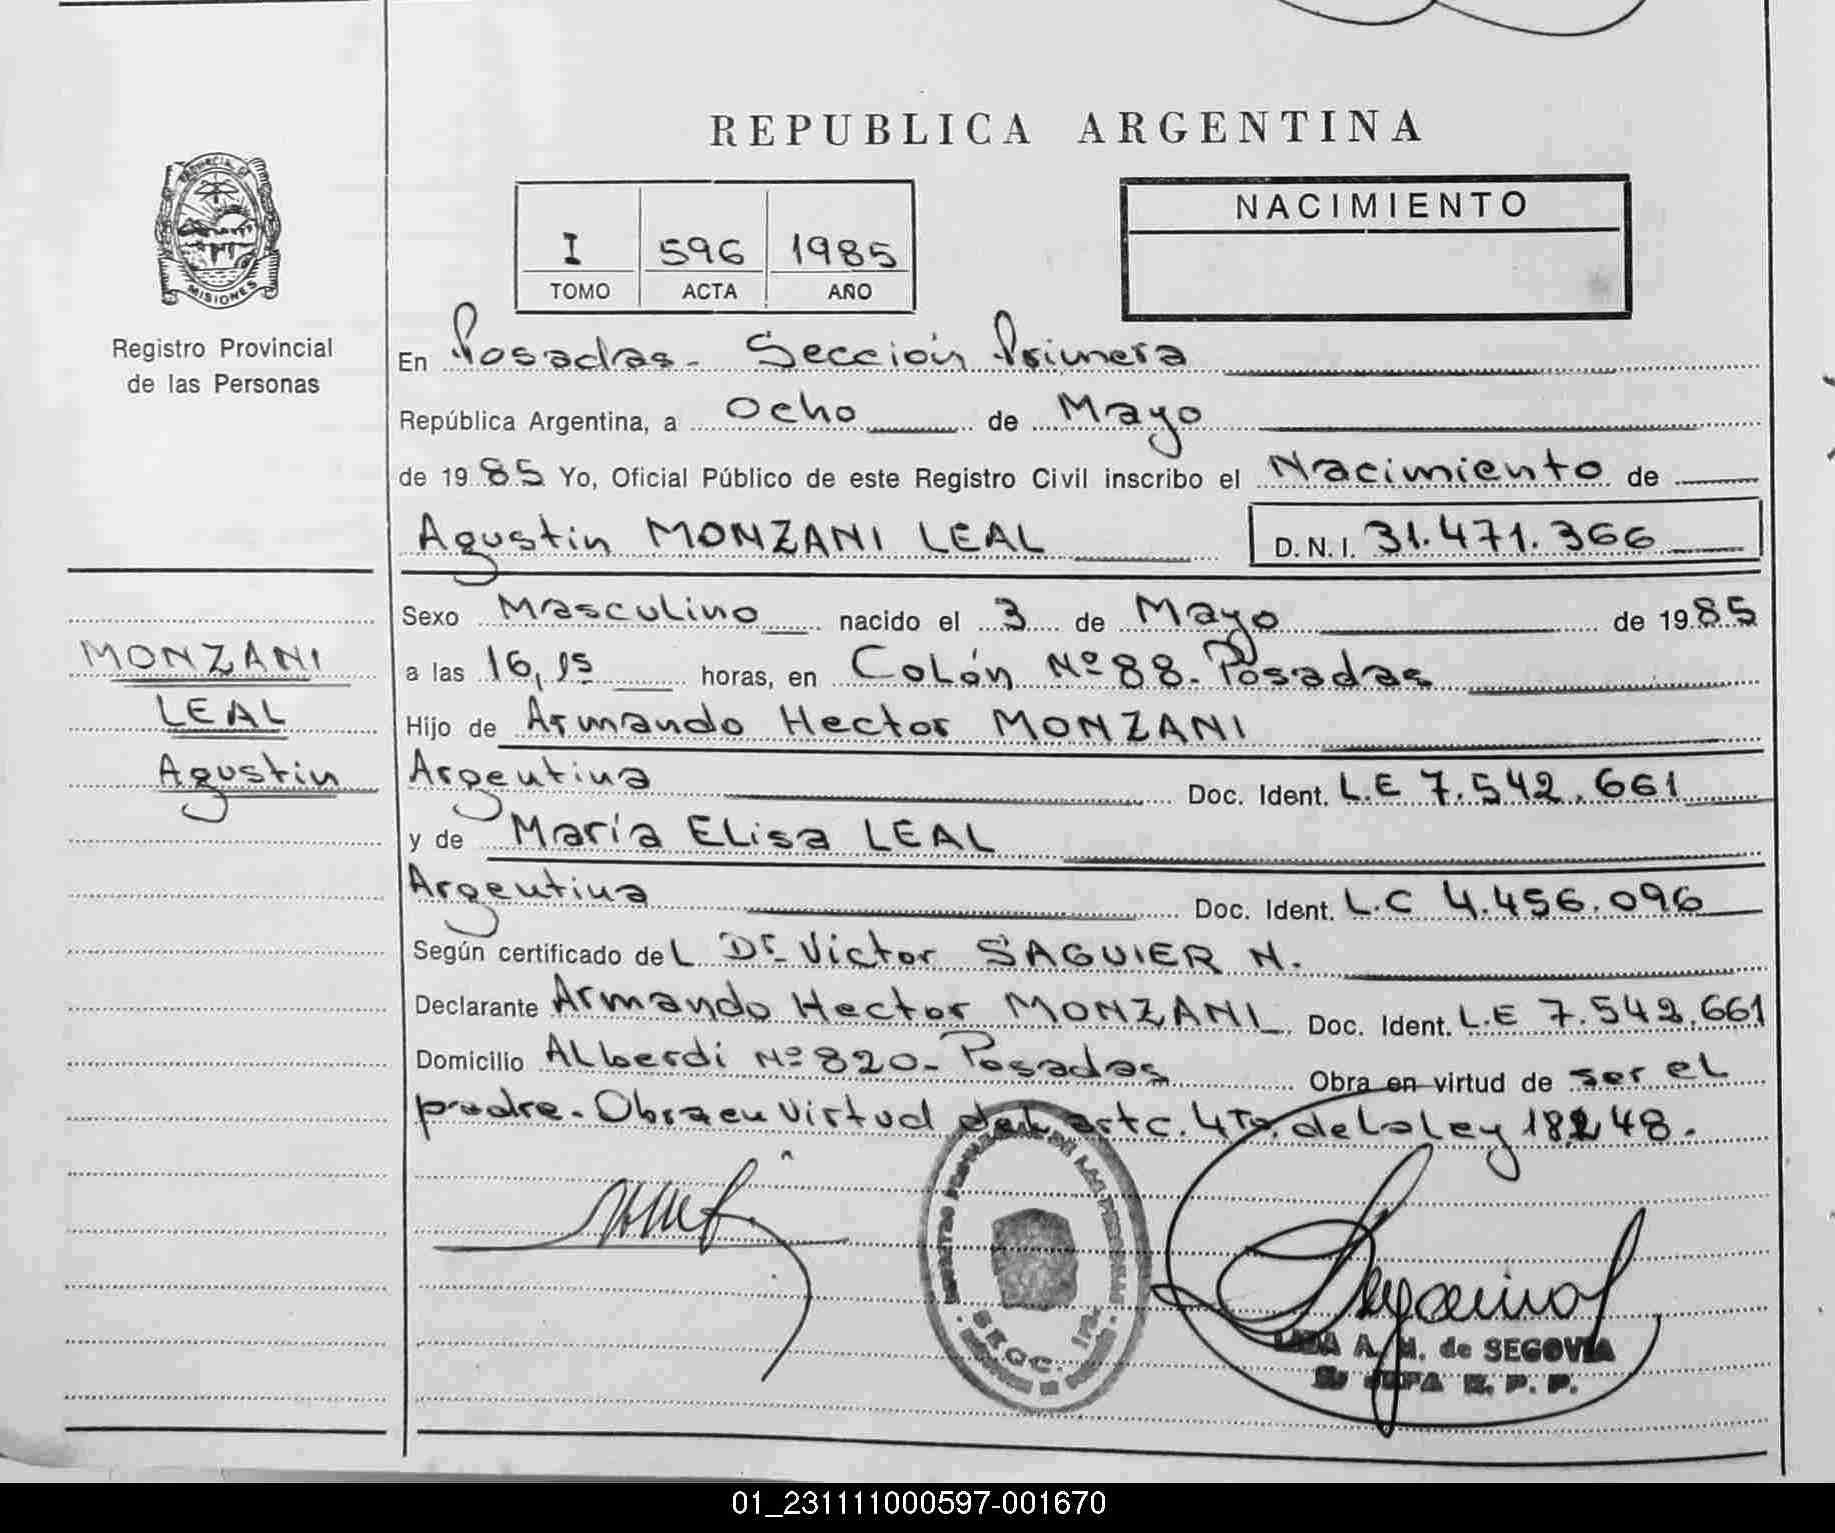 REPUBLICA ARGENTINA
PROVINCIA DE
MISIONES
Registro Provincial
de las Personas
I 596 1985
TOMO ACTA AÑO
NACIMIENTO
En Posadas - Sección Primera
República Argentina, a Ocho de Mayo
de 1985 Yo, Oficial Público de este Registro Civil inscribo el Nacimiento de
Agustin MONZANI LEAL D.N.I. 31.471.366
MONZANI
LEAL
Agustin
Sexo Masculino nacido el 3 de Mayo de 1985
a las 16,15 horas, en Colón Nº 88 - Posadas
Hijo de Armando Hector MONZANI
Argentina Doc. Ident. L.E 7.542.661
y de María Elisa LEAL
Argentina Doc. Ident. L.C 4.456.096
Según certificado del Dr Victor SAGUIER N.
Declarante Armando Hector MONZANI Doc. Ident. L.E 7.542.661
Domicilio Alberdi Nº 820 - Posadas Obra en virtud de ser el
padre - Obra en virtud del artc. 4to. de la ley 18248.
SECC. 1ra.
A. M. de SEGOVIA
JEFA R. P. P.
01_231111000597-001670